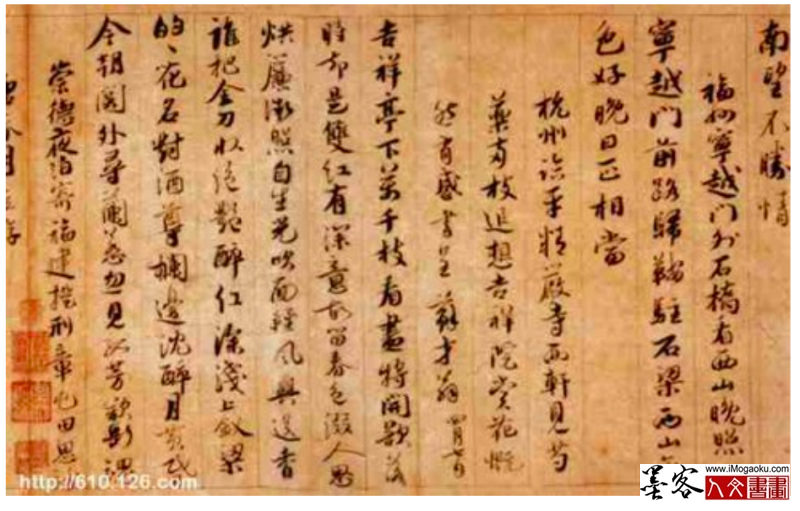 南望不勝情
福州寧越門外石橋看西山晚照
寧越門前路歸鞍駐石梁西山
色好晚日正相當
杭州臨平精嚴寺西軒見芍
藥兩枝追想吉祥院賞花慨
然有感書呈蘇才翁 四月七日
吉祥亭下萬千枝看盡將開欲落
時却是雙紅有深意故留春色綴人思
烘簾微照自生光吹面輕風與送香
誰把金刀收絕艷醉紅深淺上釵梁
的〻花名對酒尊欄邊沈醉月黃
今朝關外尋蘭蕙忽見孤芳欲斷魂
崇德夜泊寄福建提刑章屯田思
http://610.126.com/
墨客
www.iMogaoku.com
人文書畫